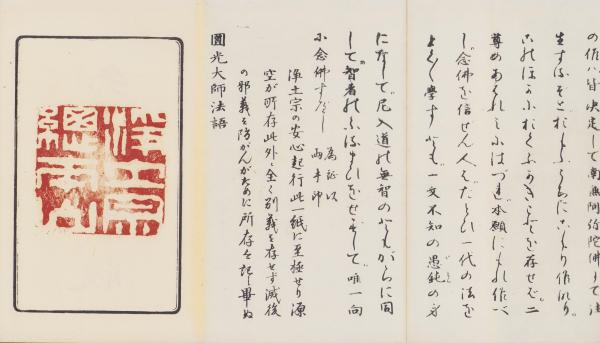 の候ハ皆決定して南無阿弥陀佛にて往
生するぞとおもふうちにこもり候なり。
このほかにおくふかきことを存せば、二
尊のあはれミにはづれ本願にもれ候べ
し念佛を信せん人ハたとひ一代の法を
よく〳〵學すとも一文不知の愚鈍の身
になして尼入道の無智のともがらに同
して智者のふるまひをせずして唯一向
に念佛すべし
為証以
両手印
浄土宗の安心起行此一紙に至極せり源
空が所存此外に全く別義を存せず滅後
の邪義を防がんがために所存を記し畢ぬ
圓光大師法語
浄土宗
總本山